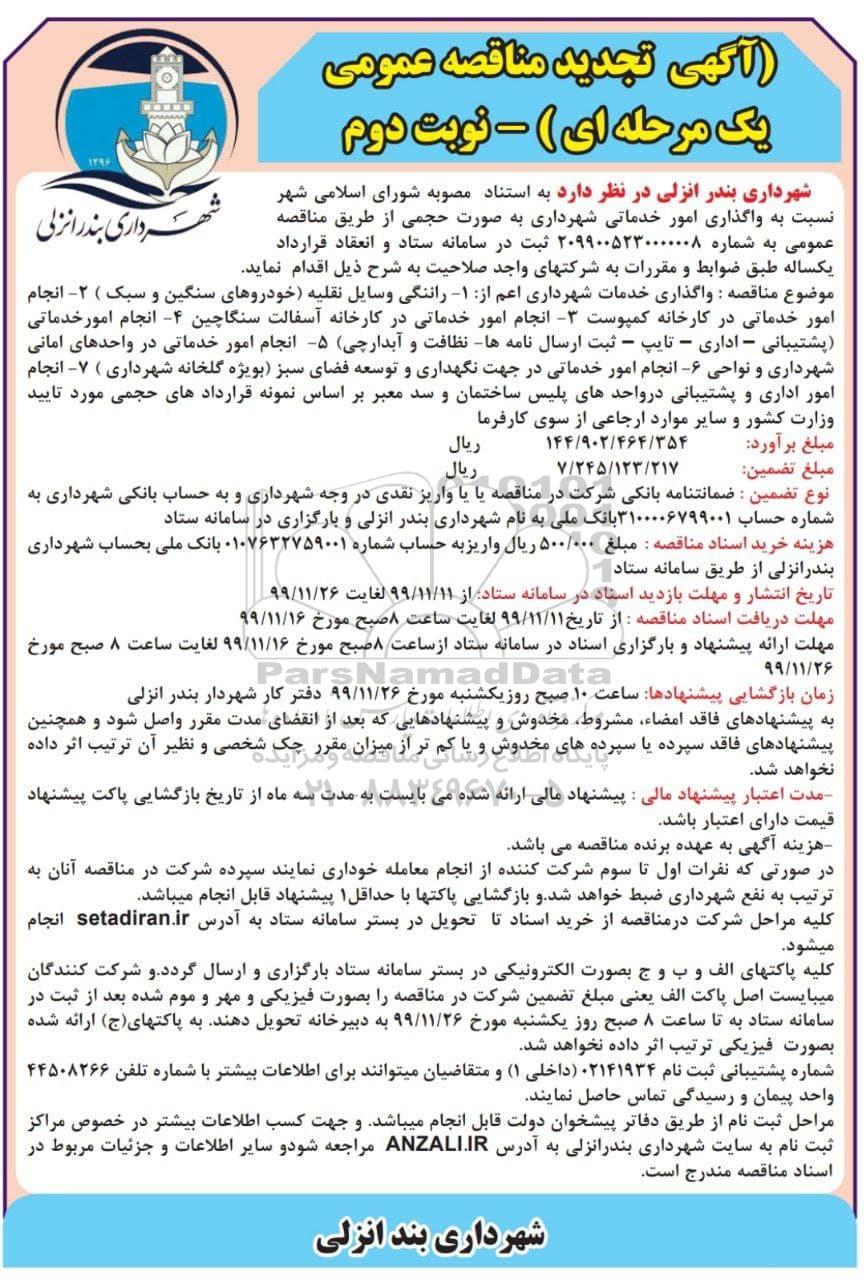 (آگهی تجدید مناقصه عمومی
یک مرحله ای) – نوبت دوم
۱۲۹۶
شهرداری بندرانزلی
شهرداری بندر انزلی در نظر دارد به استناد مصوبه شورای اسلامی شهر
نسبت به واگذاری امور خدماتی شهرداری به صورت حجمی از طریق مناقصه
عمومی به شماره ۲۰۹۹۰۰۵۲۳۰۰۰۰۰۰۸ ثبت در سامانه ستاد و انعقاد قرارداد
یکساله طبق ضوابط و مقررات به شرکتهای واجد صلاحیت به شرح ذیل اقدام نماید.
موضوع مناقصه : واگذاری خدمات شهرداری اعم از: ۱- رانندگی وسایل نقلیه (خودروهای سنگین و سبک ) ۲- انجام
امور خدماتی در کارخانه کمپوست ۳- انجام امور خدماتی در کارخانه آسفالت سنگاچین ۴- انجام امورخدماتی
(پشتیبانی – اداری – تایپ – ثبت ارسال نامه ها- نظافت و آبدارچی) ۵- انجام امور خدماتی در واحدهای امانی
شهرداری و نواحی ۶- انجام امور خدماتی در جهت نگهداری و توسعه فضای سبز (بویژه گلخانه شهرداری ) ۷- انجام
امور اداری و پشتیبانی درواحد های پلیس ساختمان و سد معبر بر اساس نمونه قرارداد های حجمی مورد تایید
وزارت کشور و سایر موارد ارجاعی از سوی کارفرما
مبلغ برآورد: ۱۴۴/۹۰۲/۴۶۴/۳۵۴ ریال
مبلغ تضمین: ۷/۲۴۵/۱۲۳/۲۱۷ ریال
نوع تضمین : ضمانتنامه بانکی شرکت در مناقصه یا یا واریز نقدی در وجه شهرداری و به حساب بانکی شهرداری به
شماره حساب ۳۱۰۰۰۰۶۷۹۹۰۰۱بانک ملی به نام شهرداری بندر انزلی و بارگزاری در سامانه ستاد
هزینه خرید اسناد مناقصه : مبلغ ۵۰۰/۰۰۰ ریال واریزبه حساب شماره ۰۱۰۷۶۳۲۷۵۹۰۰۱ بانک ملی بحساب شهرداری
بندرانزلی از طریق سامانه ستاد
تاریخ انتشار و مهلت بازدید اسناد در سامانه ستاد: از ۹۹/۱۱/۱۱ لغایت ۹۹/۱۱/۲۶
مهلت دریافت اسناد مناقصه : از تاریخ۹۹/۱۱/۱۱ لغایت ساعت ۸صبح مورخ ۹۹/۱۱/۱۶
مهلت ارائه پیشنهاد و بارگزاری اسناد در سامانه ستاد ازساعت ۸صبح مورخ ۹۹/۱۱/۱۶ لغایت ساعت ۸ صبح مورخ
۹۹/۱۱/۲۶
ParsNamadData
زمان بازگشایی پیشنهادها: ساعت ۱۰ صبح روزیکشنبه مورخ ۹۹/۱۱/۲۶ دفتر کار شهردار بندر انزلی
به پیشنهادهای فاقد امضاء، مشروط، مخدوش و پیشنهادهایی که بعد از انقضای مدت مقرر واصل شود و همچنین
پیشنهادهای فاقد سپرده یا سپرده های مخدوش و یا کم تر از میزان مقرر چک شخصی و نظیر آن ترتیب اثر داده
پایگاه اطلاع رسانی مناقصه و مزایده
نخواهد شد.
۰۲۱-۸۸۳۴۹۶۷۰-۵
-مدت اعتبار پیشنهاد مالی : پیشنهاد مالی ارائه شده می بایست به مدت سه ماه از تاریخ بازگشایی پاکت پیشنهاد
قیمت دارای اعتبار باشد.
-هزینه آگهی به عهده برنده مناقصه می باشد.
در صورتی که نفرات اول تا سوم شرکت کننده از انجام معامله خوداری نمایند سپرده شرکت در مناقصه آنان به
ترتیب به نفع شهرداری ضبط خواهد شد.و بازگشایی پاکتها با حداقل۱ پیشنهاد قابل انجام میباشد.
کلیه مراحل شرکت درمناقصه از خرید اسناد تا تحویل در بستر سامانه ستاد به آدرس setadiran.ir انجام
میشود.
کلیه پاکتهای الف و ب و ج بصورت الکترونیکی در بستر سامانه ستاد بارگزاری و ارسال گردد.و شرکت کنندگان
میبایست اصل پاکت الف یعنی مبلغ تضمین شرکت در مناقصه را بصورت فیزیکی و مهر و موم شده بعد از ثبت در
سامانه ستاد به تا ساعت ۸ صبح روز یکشنبه مورخ ۹۹/۱۱/۲۶ به دبیرخانه تحویل دهند. به پاکتهای(ج) ارائه شده
بصورت فیزیکی ترتیب اثر داده نخواهد شد.
شماره پشتیبانی ثبت نام ۰۲۱۴۱۹۳۴ (داخلی ۱) و متقاضیان میتوانند برای اطلاعات بیشتر با شماره تلفن ۴۴۵۰۸۲۶۶
واحد پیمان و رسیدگی تماس حاصل نمایند.
مراحل ثبت نام از طریق دفاتر پیشخوان دولت قابل انجام میباشد. و جهت کسب اطلاعات بیشتر در خصوص مراکز
ثبت نام به سایت شهرداری بندرانزلی به آدرس ANZALI.IR مراجعه شودو سایر اطلاعات و جزئیات مربوط در
اسناد مناقصه مندرج است.
شهرداری بند انزلی